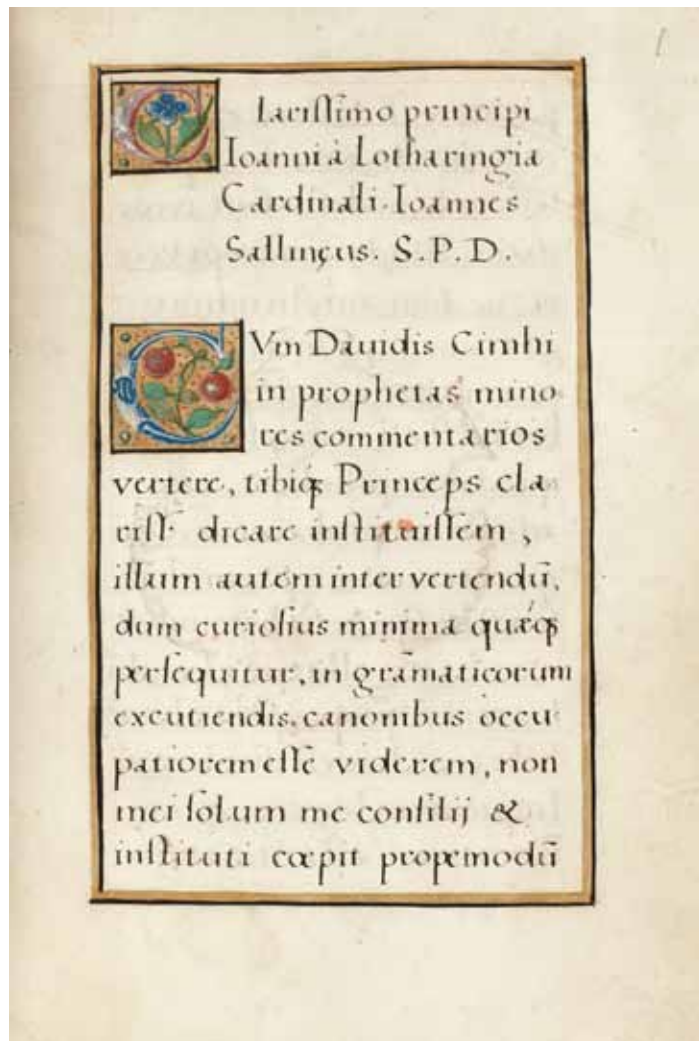 1
Clarissimo principi
Ioanni à Lotharingia
Cardinali. Ioannes
Sallinęus. S. P. D.
CVm Dauidis Cimhi
in prophetas mino
res commentarios
vertere, tibiq; Princeps cla
riss. dicare instituissem,
illum autem inter vertendū,
dum curiosius minima quæq;
persequitur, in grāmaticorum
excutiendis. canonibus occu
patiorem esse viderem, non
mei solum me consilij &
instituti cœpit propemodū